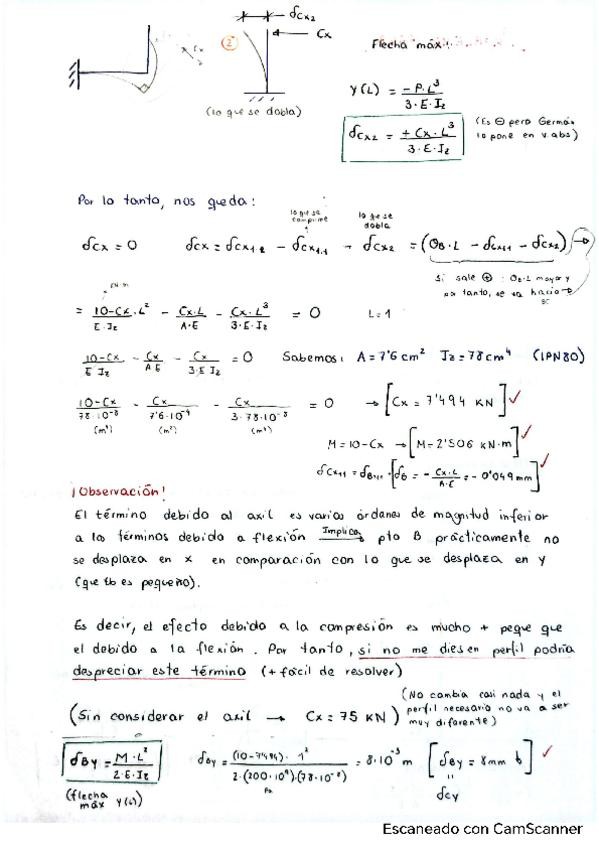 δcx₂
Cx
Cx
2
(lo que se dobla)
Flecha máx:
y(L) = -P·L³ / 3·E·Iz
δcx₂ = +Cx·L³ / 3·E·Iz
(Es ⊖ pero Germán lo pone en v.abs)
Por lo tanto, nos queda:
lo que se comprime
lo que se dobla
δcx = 0 δcx = δcx1·2 - δcx1,1 - δcx2 = (θB·L - δcx1,1 - δcx2)
Si sale ⊕: θB·L mayor y
por tanto, se va hacia
= 10-Cx·L² / E·Iz - Cx·L / A·E - Cx·L³ / 3·E·Iz = 0 L=1
10-Cx / E Iz - Cx / AE - Cx / 3·E Iz = 0 Sabemos: A = 7'6 cm² Iz = 78 cm⁴ (IPN80)
10-Cx / 78·10⁻⁸ - Cx / 7'6·10⁻⁴ - Cx / 3·78·10⁻⁸ = 0 → [Cx = 7'494 KN] ✓
(m⁴) (m²) (m⁴)
M = 10-Cx → [M = 2'506 KN·m] ✓
= - Cx·L / A·E = - 0'049 mm] ✓
¡Observación!
El término debido al axil es varios órdenes de magnitud inferior
a los términos debido a flexión Implica → pto B prácticamente no
se desplaza en x en comparación con lo que se desplaza en y
(que tb es pequeño).
Es decir, el efecto debido a la compresión es mucho + peque que
el debido a la flexión. Por tanto, si no me diesen perfil podría
despreciar este término (+ fácil de resolver)
(Sin considerar el axil → Cx = 75 KN)
(No cambia casi nada y el perfil necesario no va a ser muy diferente)
δBy = M·L² / 2·E·Iz
(flecha máx y(L))
δBy = (10-7'494)·1² / 2·(200·10⁶)·(78·10⁻⁸) = 8·10⁻³ m [δBy = 8mm ↓] ✓
Pa
=
δcy
Escaneado con CamScanner